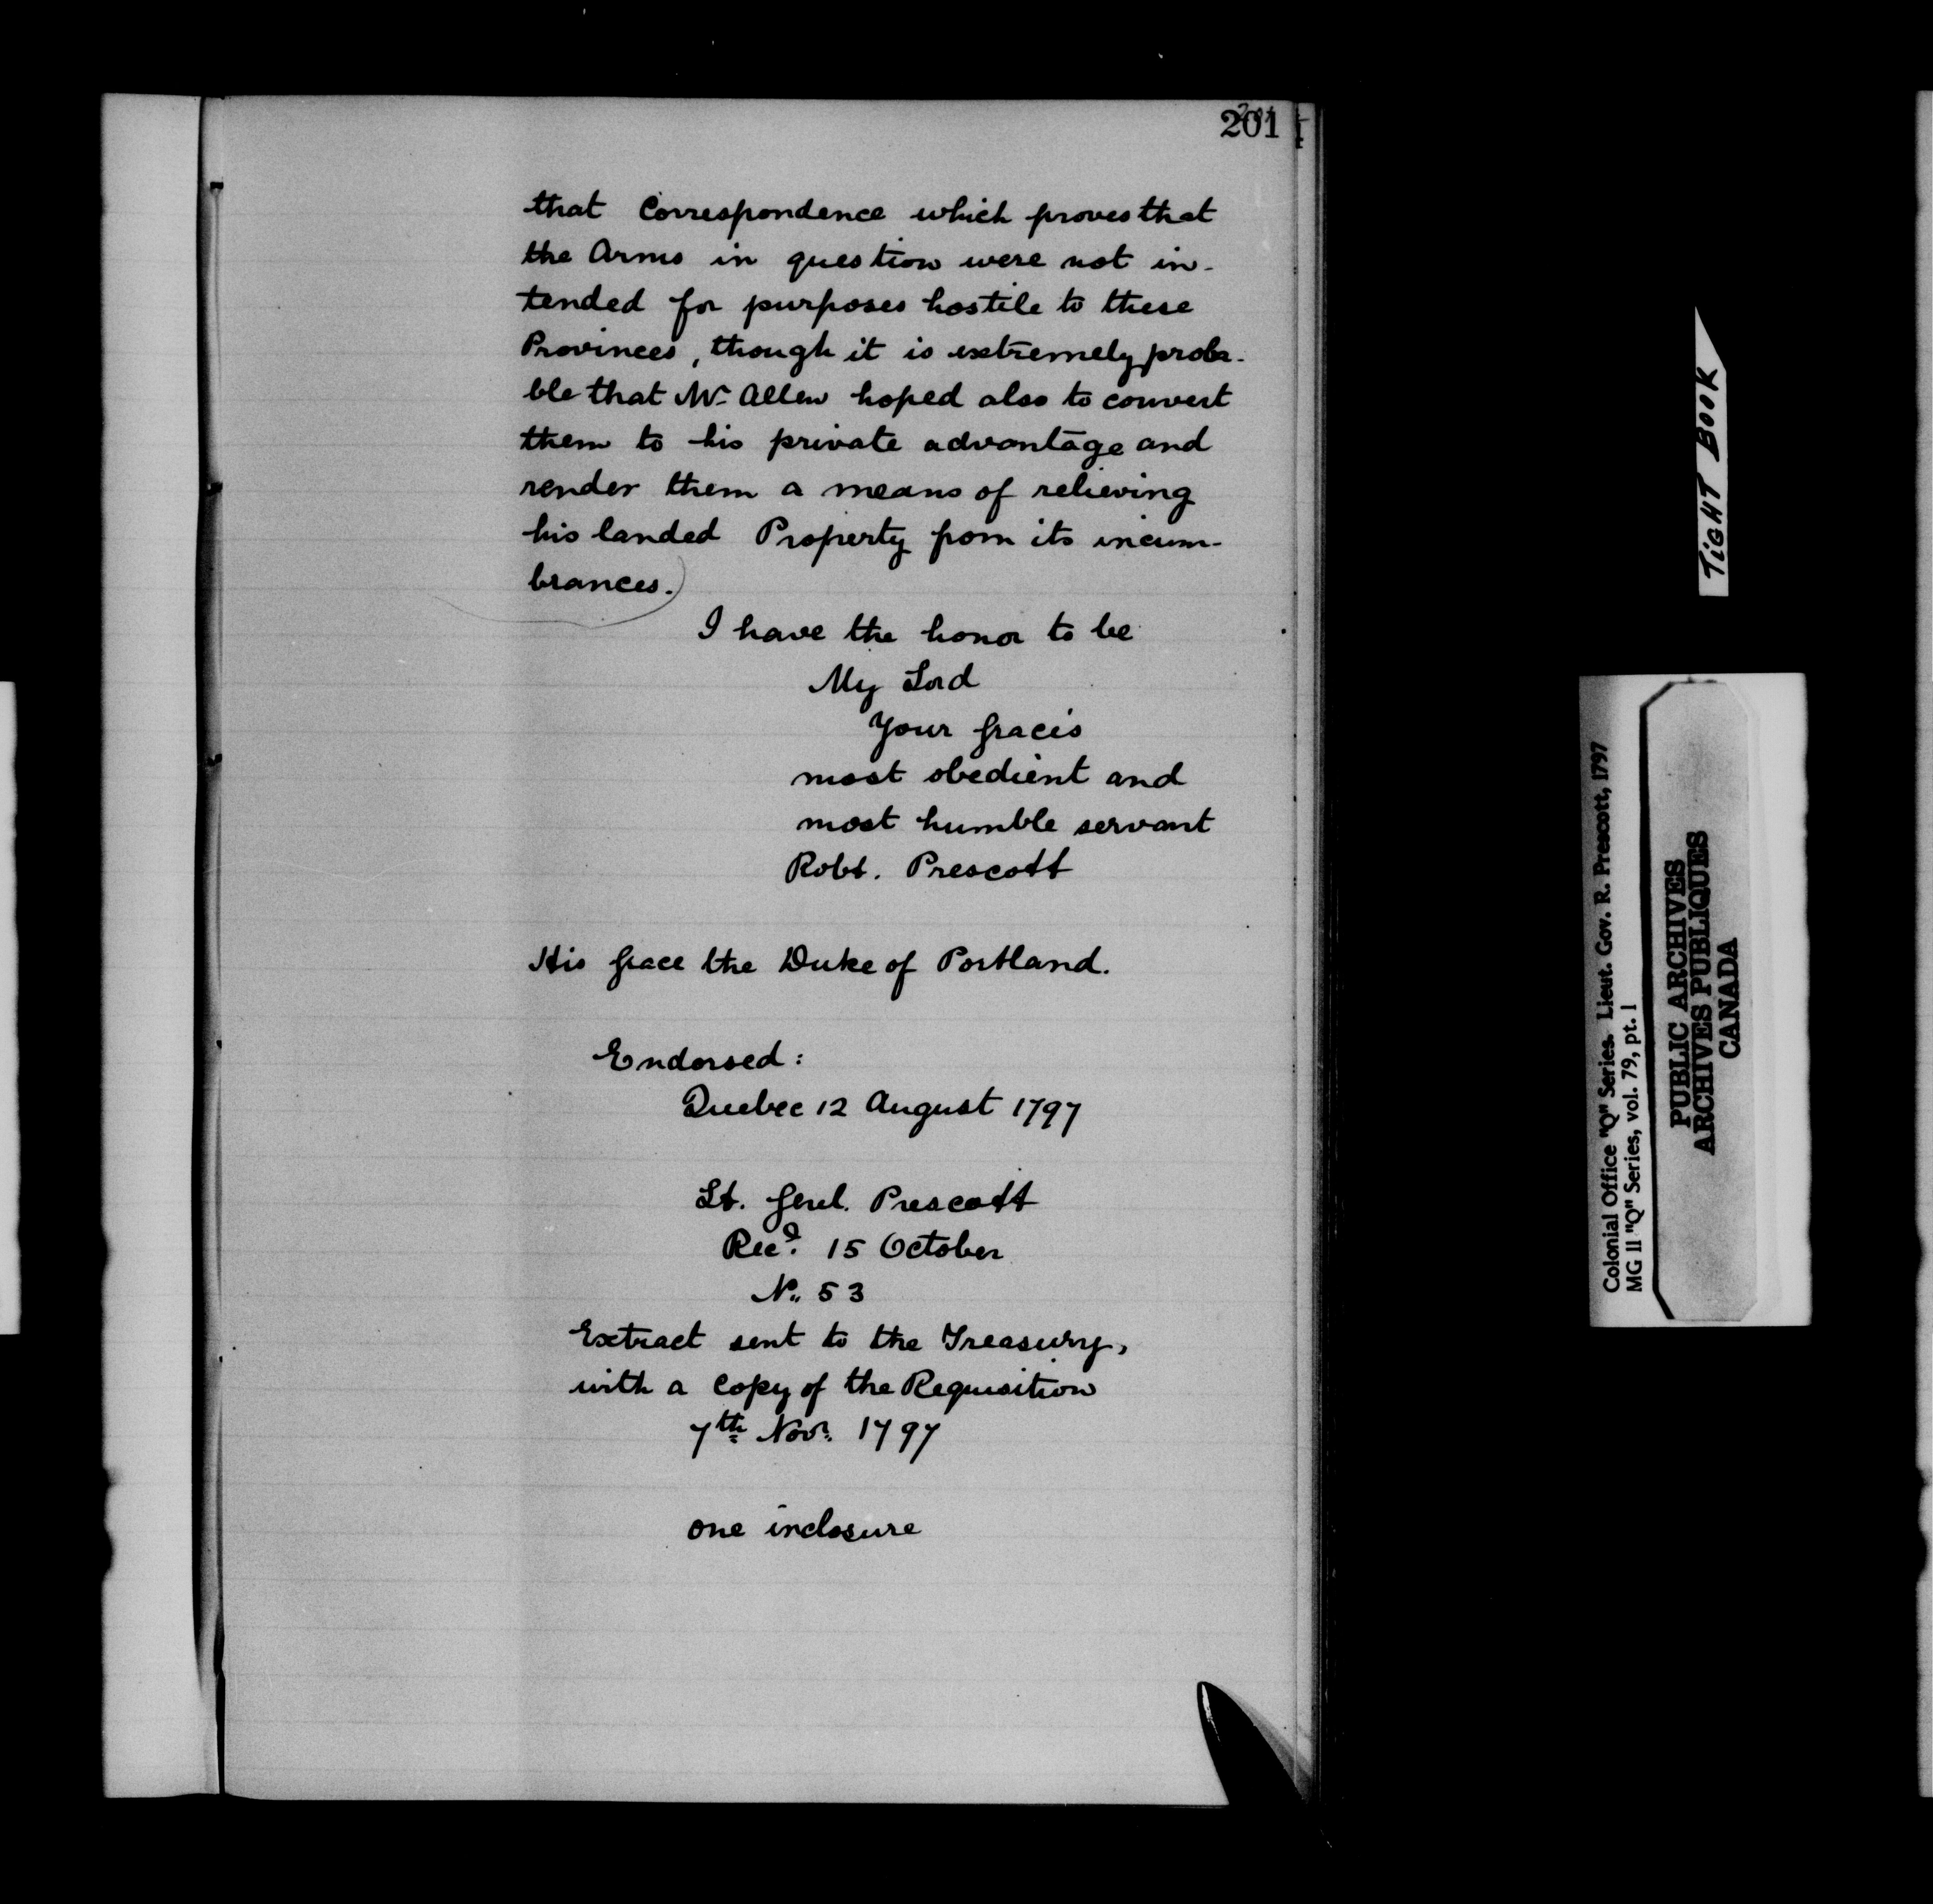 201
that Correspondence which proves that
the Arms in question were not in-
tended for purposes hostile to these
Provinces, though it is extremely proba-
ble that Mr Allen hoped also to convert
them to his private advantage and
render them a means of relieving
his landed Property from its incum-
brances.
I have the honor to be
My Lord
Your Grace's
most obedient and
most humble servant
Robt. Prescott
His Grace the Duke of Portland.
Endorsed:
Quebec 12 August 1797
Lt. Genl. Prescott
Recd. 15 October
No. 53
Extract sent to the Treasury,
with a Copy of the Requisition
7th Novr. 1797
one inclosure
TIGHT BOOK
Colonial Office "Q" Series. Lieut. Gov. R. Prescott, 1797
MG 11 "Q" Series, vol. 79, pt. 1
PUBLIC ARCHIVES
ARCHIVES PUBLIQUES
CANADA